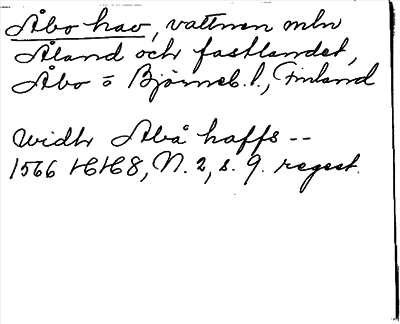 Åbo hav, vattnen mln
Åland och fastlandet,
Åbo o Björneb. l., Finland
widh Åbå haffs --
1566 HH8, N. 2, s. 9. regest.